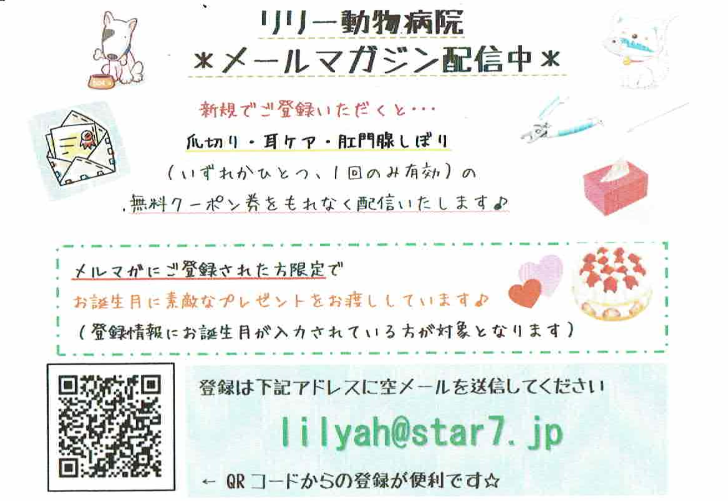 リリー動物病院
＊メールマガジン配信中＊
新規でご登録いただくと・・・
爪切り・耳ケア・肛門腺しぼり
（いずれかひとつ、1回のみ有効）の
無料クーポン券をもれなく配信いたします♪
メルマガにご登録された方限定で
お誕生月に素敵なプレゼントをお渡ししています♪
（登録情報にお誕生月が入力されている方が対象となります）
登録は下記アドレスに空メールを送信してください
lilyah@star7.jp
← QRコードからの登録が便利です☆